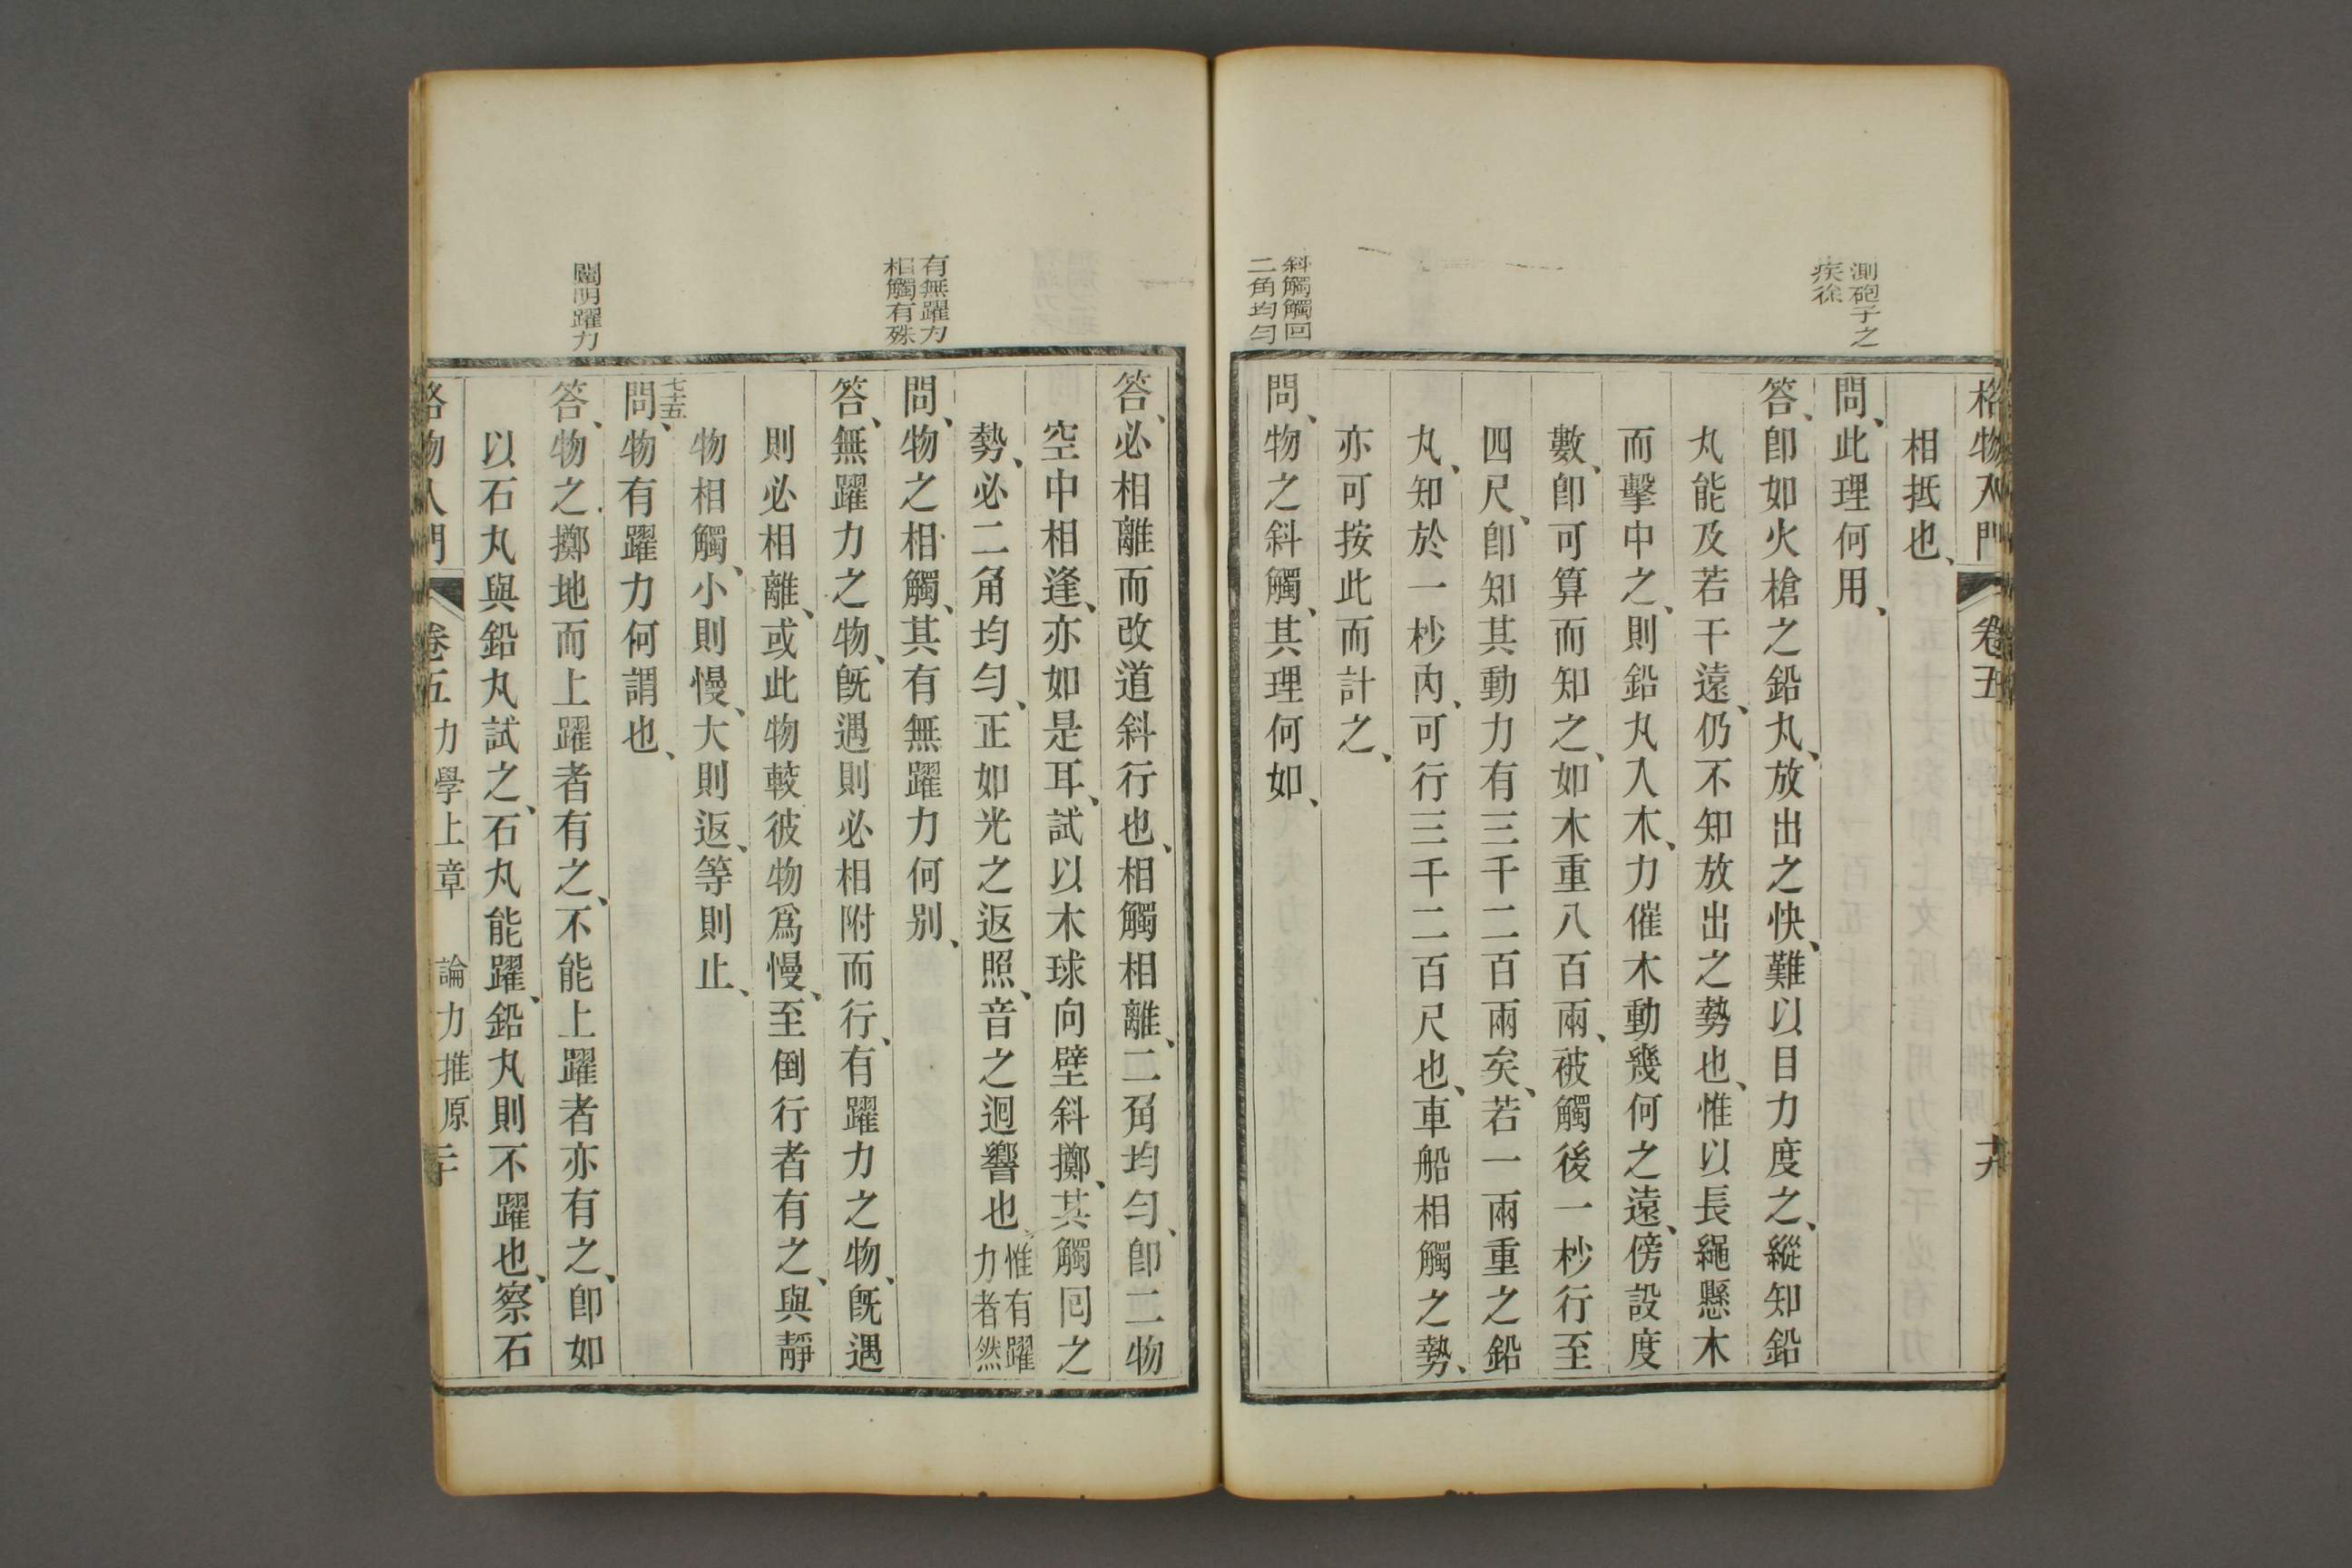 格物入門 卷五 十九
測砲子之
疾徐
斜觸觸回
二角均勻
相抵也、
問、此理何用、
答、卽如火槍之鉛丸、放出之快、難以目力度之、縱知鉛
丸能及若干遠、仍不知放出之勢也、惟以長繩懸木
而擊中之、則鉛丸入木、力催木動幾何之遠、傍設度
數、卽可算而知之、如木重八百兩、被觸後一杪行至
四尺、卽知其動力有三千二百兩矣、若一兩重之鉛
丸、知於一杪內、可行三千二百尺也、車船相觸之勢、
亦可按此而計之、
問、物之斜觸、其理何如、
有無躍力
相觸有殊
闡明躍力
答、必相離而改道斜行也、相觸相離、二角均勻、卽二物
空中相逢、亦如是耳、試以木球向壁斜擲、其觸回之
勢、必二角均勻、正如光之返照、音之迴響也、惟有躍力者然
問、物之相觸、其有無躍力何別、
答、無躍力之物、旣遇則必相附而行、有躍力之物、旣遇
則必相離、或此物較彼物爲慢、至倒行者有之、與靜
物相觸、小則慢、大則返、等則止、
七十五
問、物有躍力何謂也、
答、物之擲地而上躍者有之、不能上躍者亦有之、卽如
以石丸與鉛丸試之、石丸能躍、鉛丸則不躍也、察石
格物入門 卷五 力學上章 論力推原 二十